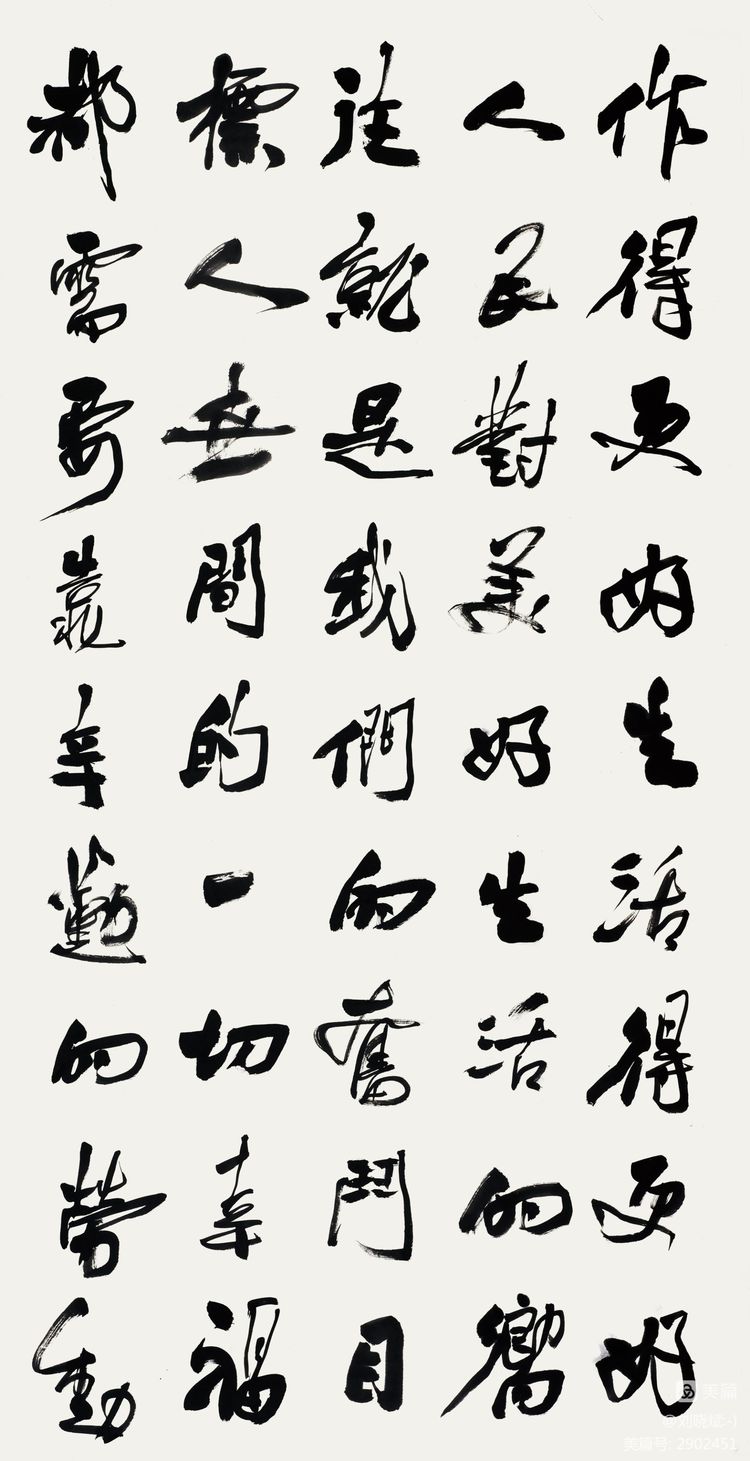 作得更好生活得更好
人民對美好生活的嚮
往就是我們的奮鬥目
標人世間的一切幸福
都需要靠辛勤的勞動
美篇
@刘晓斌:-)
美篇号: 2902451